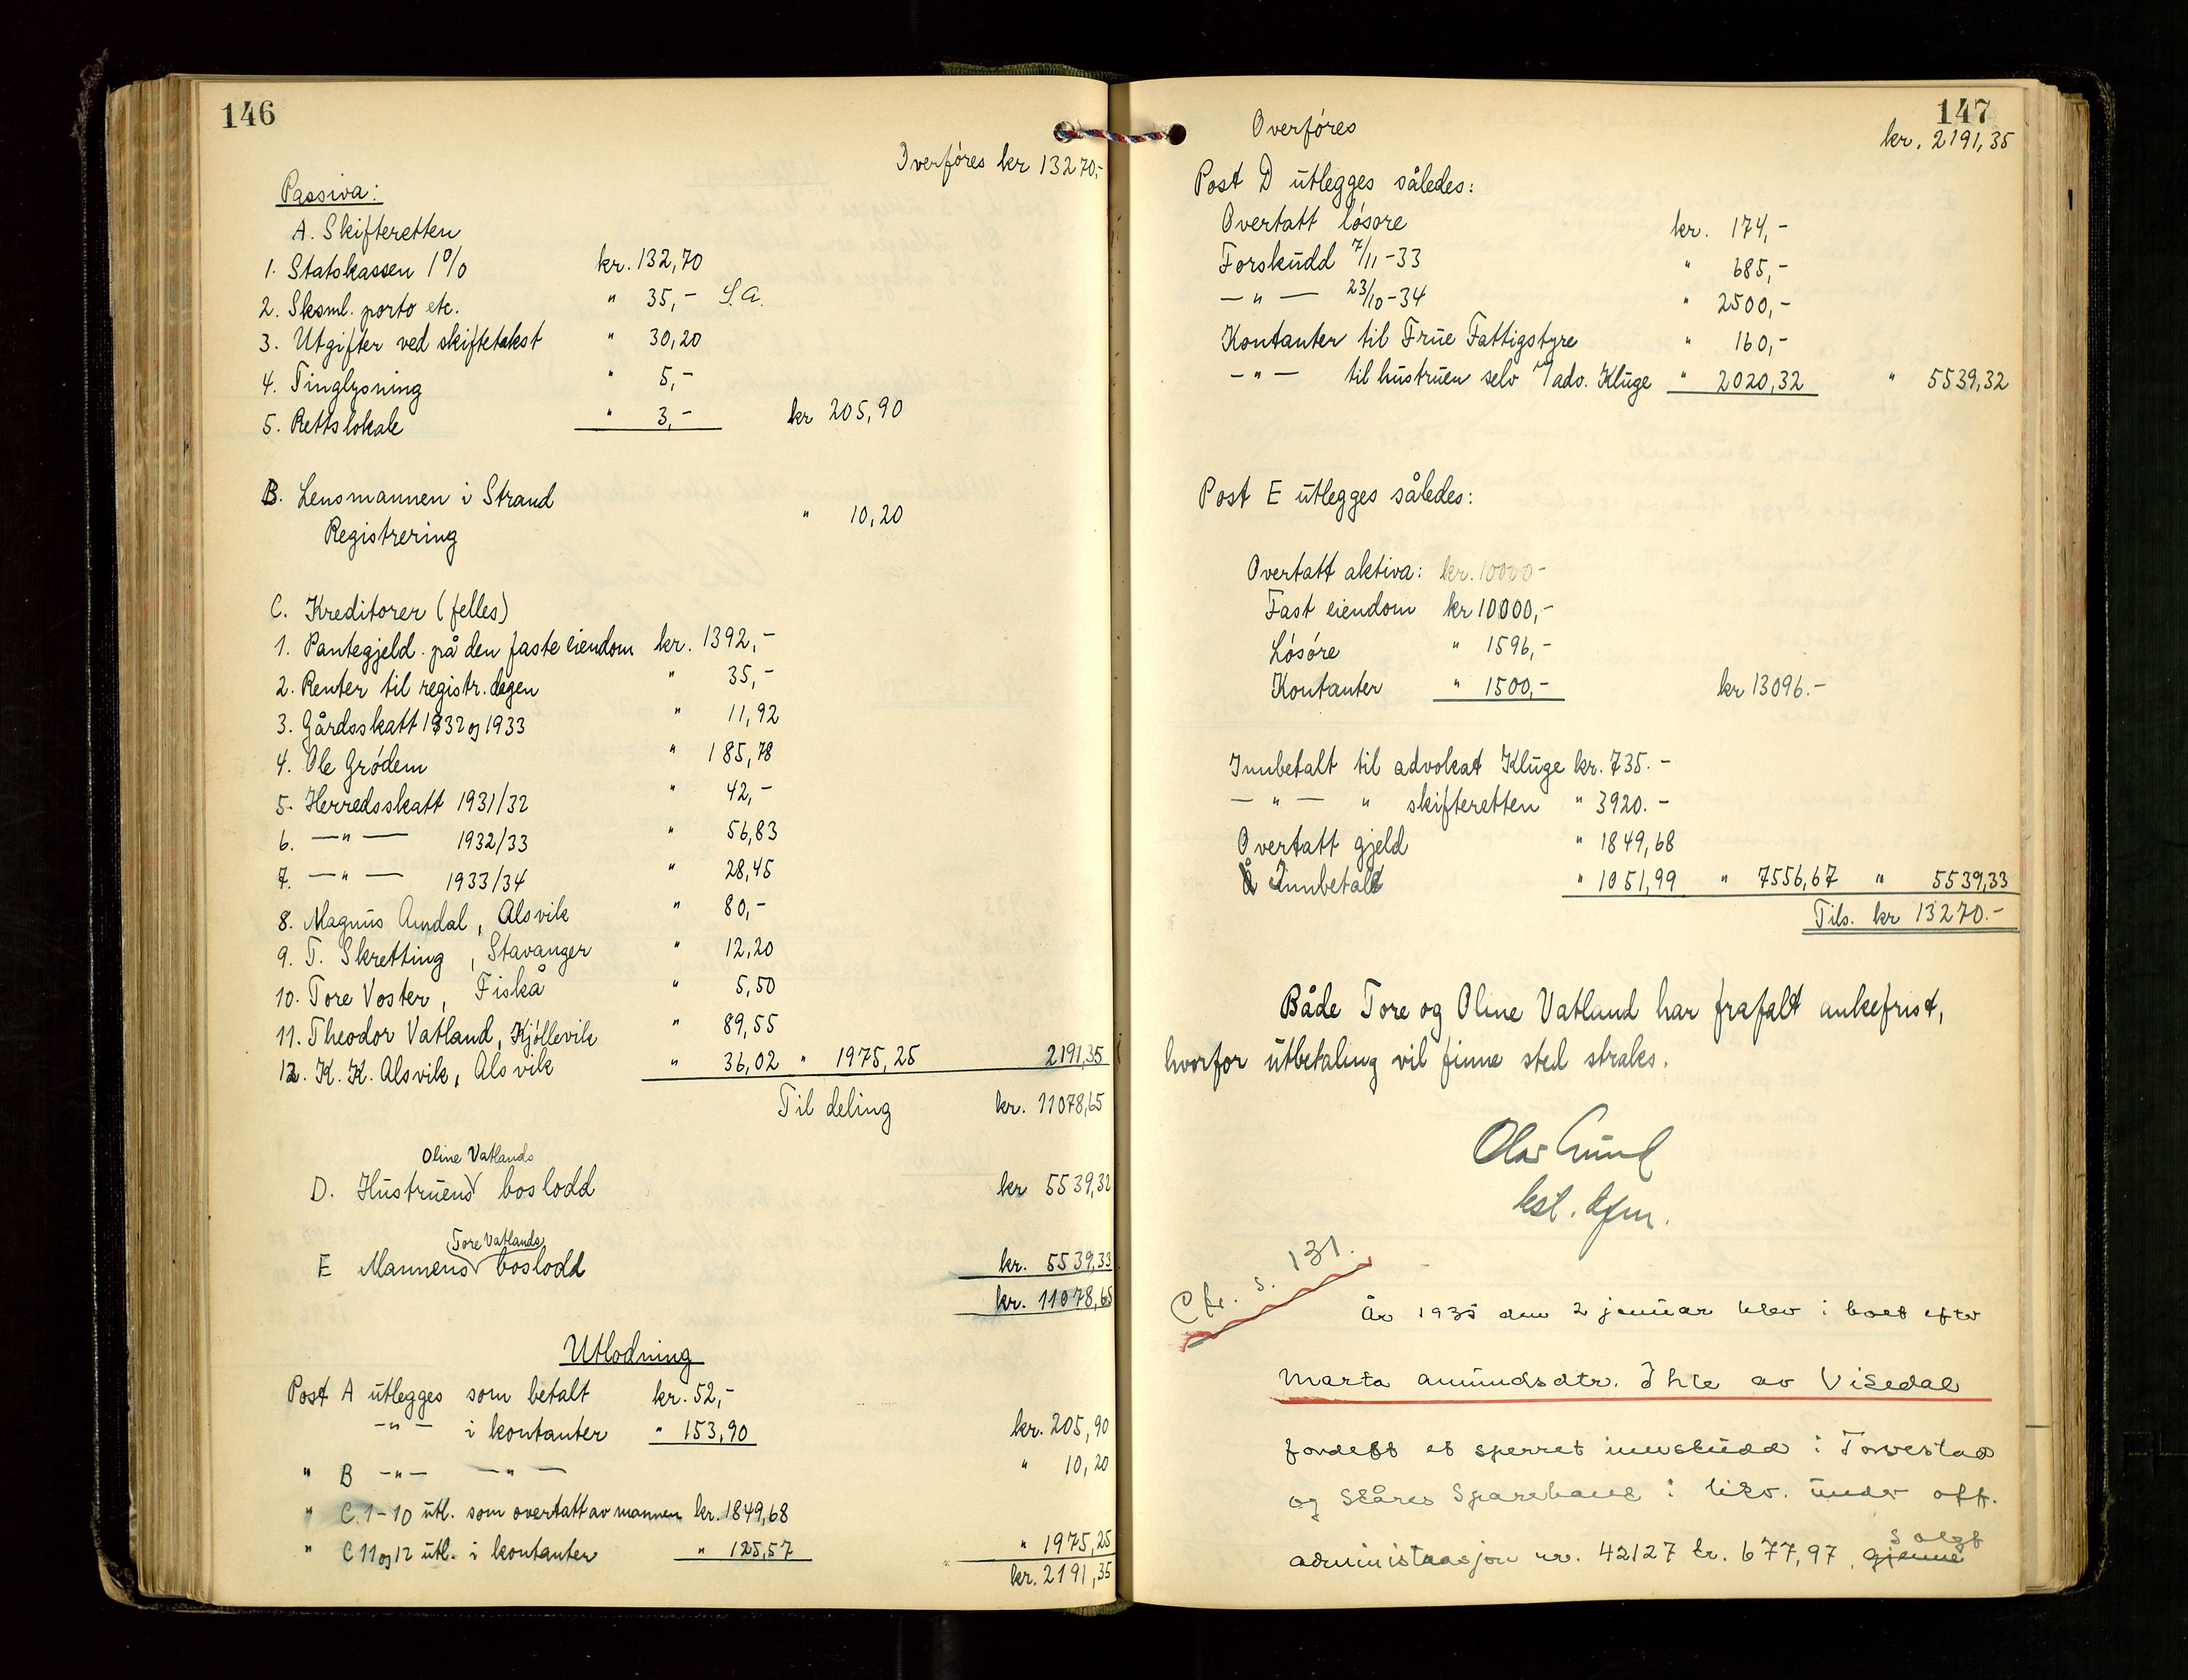 146
Overføres kr 13270,-
Passiva:
A. Skifteretten
1. Statskassen 1% kr. 132,70
2. Sksml. porto etc. " 35,- S.A.
3. Utgifter ved skiftetakst " 30,20
4. Tinglysning " 5,-
5. Rettslokale " 3,- kr 205,90
B. Lensmannen i Strand
Registrering " 10,20
C. Kreditorer (felles)
1. Pantegjeld på den faste eiendom kr. 1392,-
2. Renter til registr. dagen " 35,-
3. Gårdsskatt 1932 og 1933 " 11,92
4. Ole Grødem " 185,78
5. Herredsskatt 1931/32 " 42,-
6. —"— 1932/33 " 56,83
7. —"— 1933/34 " 28,45
8. Magnus Amdal, Alsvik " 80,-
9. T. Skretting, Stavanger " 12,20
10. Tore Voster, Fiskå " 5,50
11. Theodor Vatland, Kjøllevik " 89,55
12. K. K. Alsvik, Alsvik " 36,02 " 1975,25 2191,35
Til deling kr. 11078,65
Oline Vatlands
D. Hustruens boslodd kr 5539,32
Tore Vatlands
E Mannens boslodd kr. 5539,33
kr. 11078,65
Utlodning
Post A utlegges som betalt kr. 52,-
—"— i kontanter " 153,90 kr. 205,90
" B —"— —"— " 10,20
" C. 1-10 utl. som overtatt av mannen kr. 1849,68
" C 11 og 12 utl. i kontanter " 125,57 " 1975,25
kr. 2191,35
147
Overføres kr. 2191,35
Post D utlegges således:
Overtatt løsøre kr. 174,-
Forskudd 7/11-33 " 685,-
—"— 23/10-34 " 2500,-
Kontanter til Frue Fattigstyre " 160,-
—"— til hustruen selv v/adv. Kluge " 2020,32 " 5539,32
Post E utlegges således:
Overtatt aktiva: kr. 10000-
Fast eiendom kr 10000,-
Løsøre " 1596,-
Kontanter " 1500,- kr 13096.-
Innbetalt til advokat Kluge kr. 735.-
—"— " skifteretten " 3920.-
Overtatt gjeld " 1849,68
Å Innbetale " 1051,99 " 7556,67 " 5539,33
Tils. kr 13270.-
Både Tore og Oline Vatland har frafalt ankefrist,
hvorfor utbetaling vil finne sted straks.
Olav Lund
kst. dfm.
Cfr. s. 131.
År 1935 den 2 januar blev i boet efter
Marta Amundsdtr. Ihle av Visedal
fordelt et sperret innskudd i Torvestad
og Skåres Sparebank i likv. under off.
administrasjon nr. 42127 kr. 677,97, gjenne
solgt